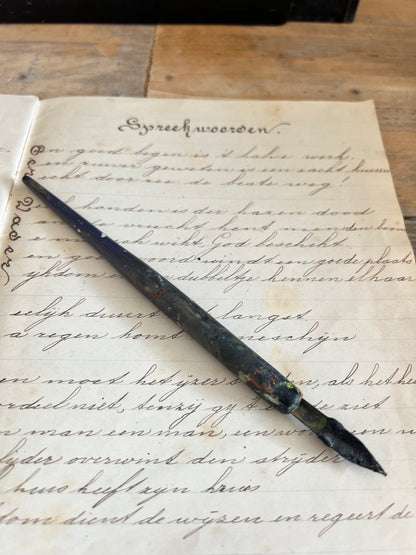 Spreekwoorden.
en goed begin is 't halve werk.
en zuiver geweten is een zacht
echt door zee de beste weg!
honden is der hazen dood
de vrucht kent men den boom
wikt, God beschikt
en goed woord vindt een goede plaats
ijkdom en dubbeltje kennen elkaar
eelijk duurt langst.
a regen komt neschijn
en moet het ijzer den, als het he
rdeel niet, tenzij gy t ziet
n man een man, een woo een
lijder overwint din strijder
huis heeft zijn kruis
dom dient de wijzen en regeert de
Een Vader